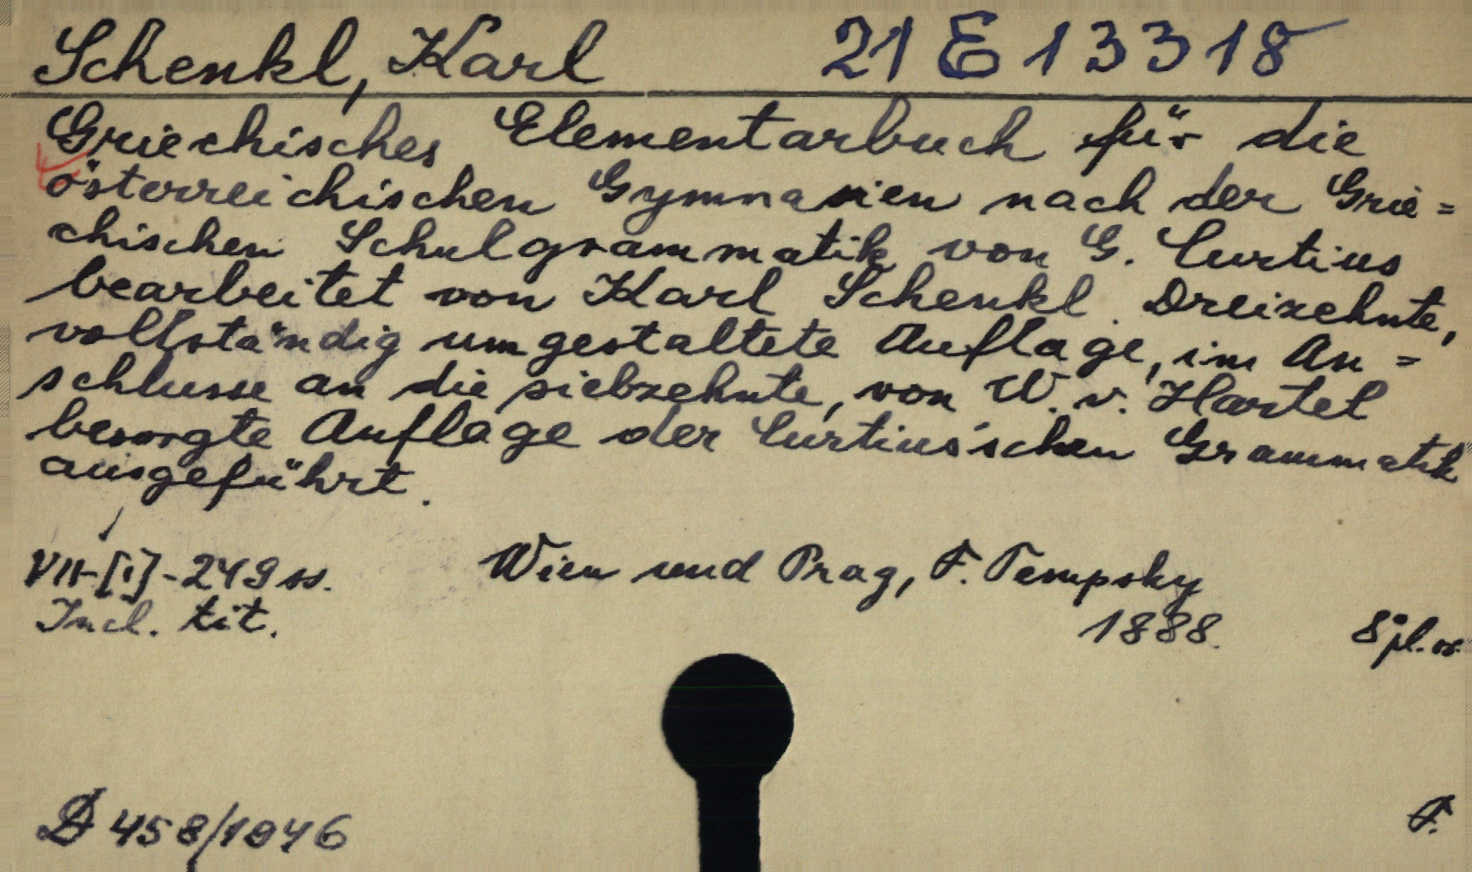 Schenkl, Karl 21 E 13318
Griechisches Elementarbuch für die
österreichischen Gymnasien nach der Grie=
chischen Schulgrammatik von G. Curtius
bearbeitet von Karl Schenkl. Dreizehnte,
vollständig umgestaltete Auflage, im An=
schlusse an die siebzehnte, von W. v. Hartel
besorgte Auflage der Curtius'schen Grammatik
ausgeführt.
VII-[I]-249 ss. Wien und Prag, F. Tempsky
Incl. tit. 1888. 8° pl. os.
D 458/1946 F.